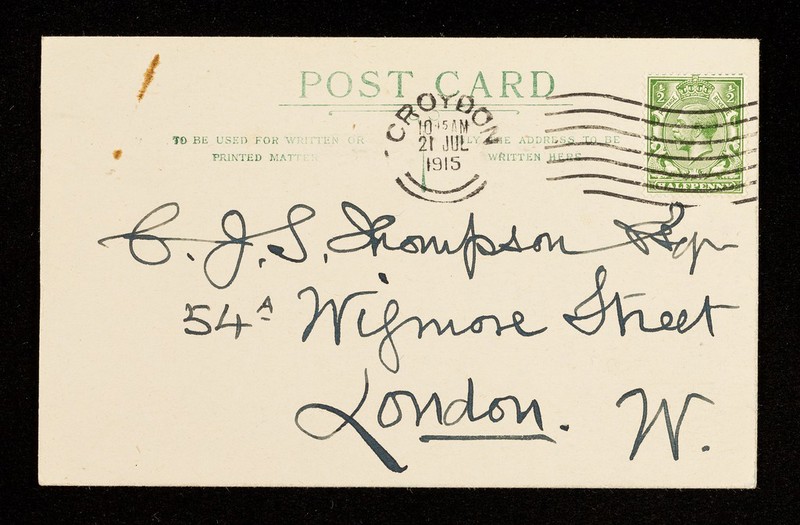 POST CARD
TO BE USED FOR WRITTEN OR
PRINTED MATTER
THE ADDRESS TO BE
WRITTEN HERE
CROYDON
10 45 AM
21 JUL
1915
½ ½
HALFPENNY
C. J. S. Thompson Esqr
54A Wigmore Street
London. W.